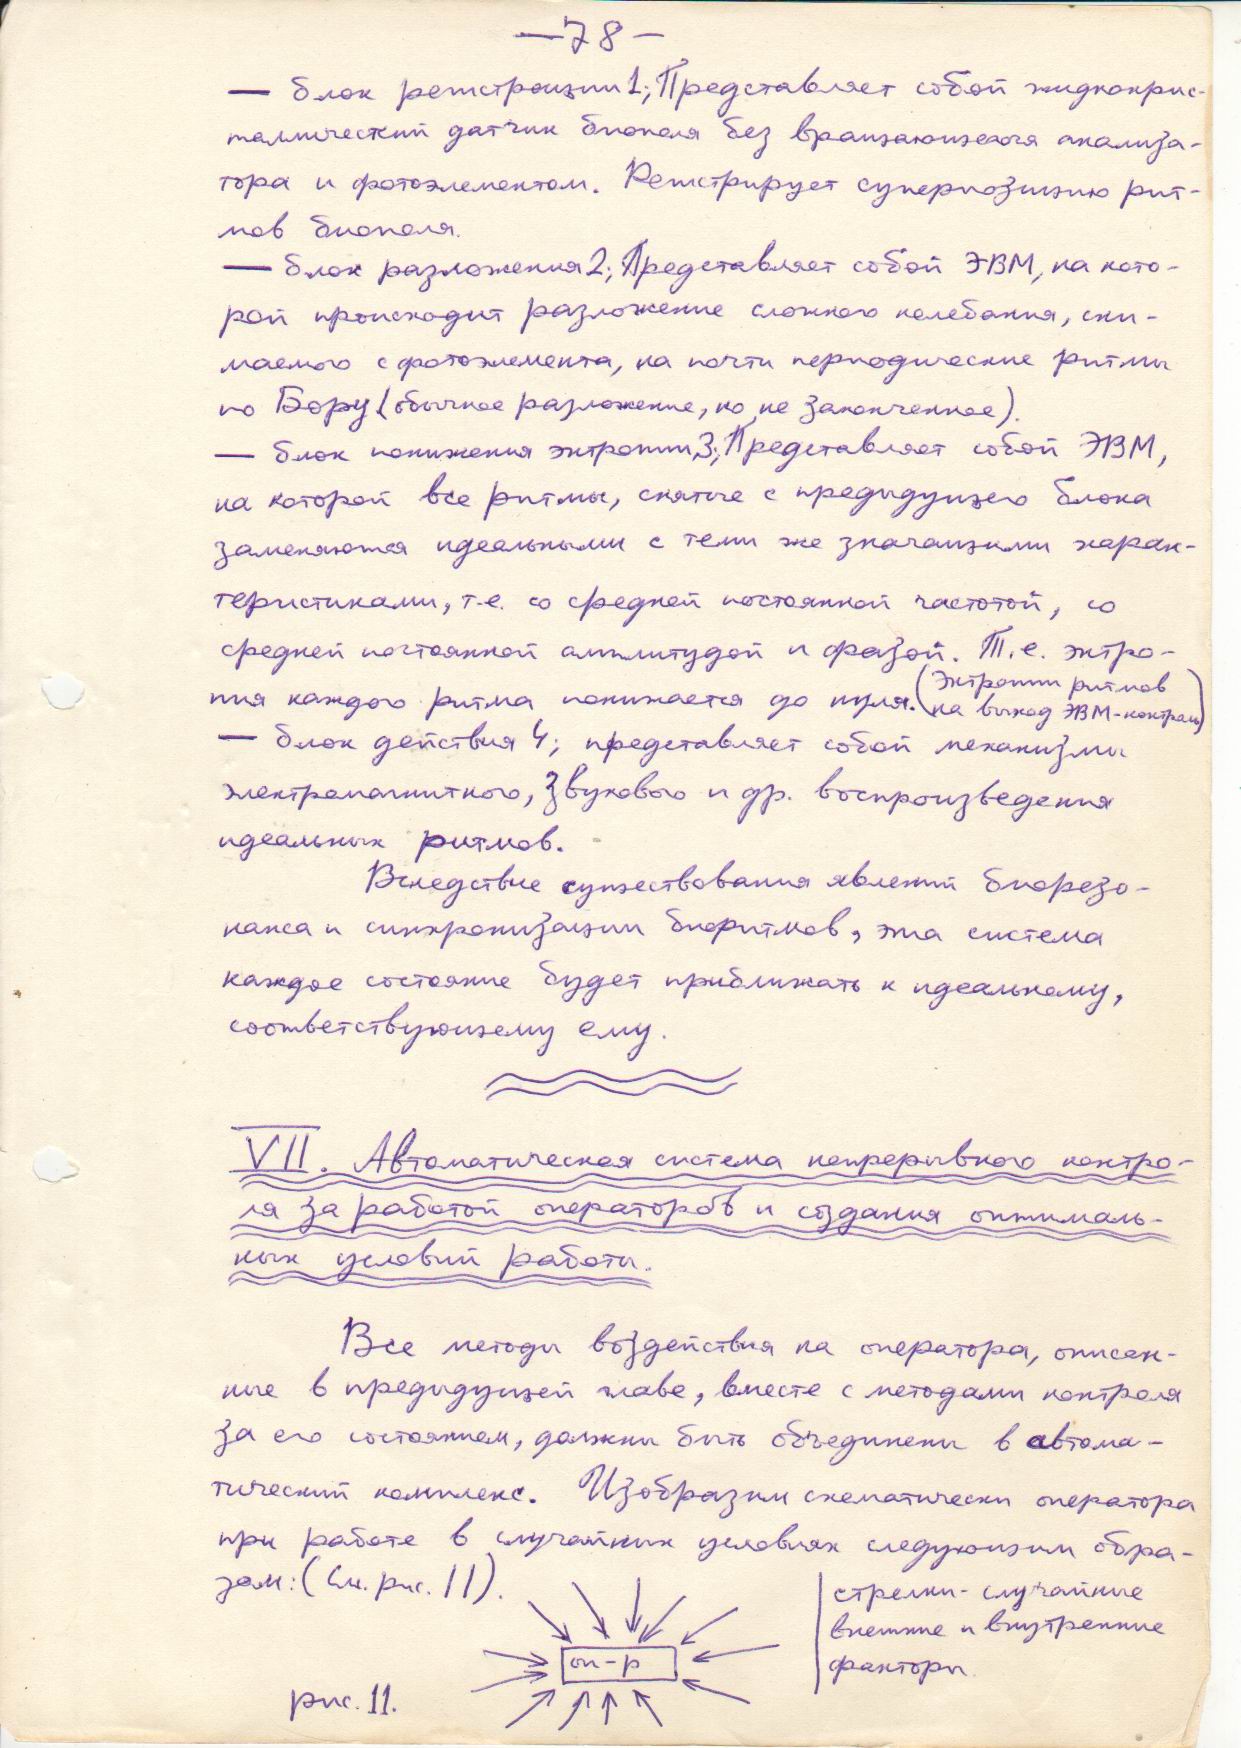 — 78 —
— блок регистрации 1; Представляет собой жидкокрис-
таллический датчик биополя без вращающегося анализа-
тора и фотоэлементом. Регистрирует суперпозицию рит-
мов биополя.
— блок разложения 2; Представляет собой ЭВМ, на кото-
рой происходит разложение сложного колебания, сни-
маемого с фотоэлемента, на почти периодические ритмы
по Бору (обычное разложение, но не законченное).
— блок понижения энтропии 3; Представляет собой ЭВМ,
на которой все ритмы, снятые с предыдущего блока
заменяются идеальными с теми же значащими харак-
теристиками, т.е. со средней постоянной частотой, со
средней постоянной амплитудой и фазой. Т.е. энтро-
пия каждого ритма понижается до нуля. (Энтропии ритмов
на выход ЭВМ-контроль)
— блок действия 4; представляет собой механизмы
электромагнитного, звукового и др. воспроизведения
идеальных ритмов.
Вследствие существования явлений биорезо-
нанса и синхронизации биоритмов, эта система
каждое состояние будет приближать к идеальному,
соответствующему ему.
VII. Автоматическая система непрерывного контро-
ля за работой операторов и создания оптималь-
ных условий работы.
Все методы воздействия на оператора, описан-
ные в предыдущей главе, вместе с методами контроля
за его состоянием, должны быть объединены в автома-
тический комплекс. Изобразим схематически оператора
при работе в случайных условиях следующим обра-
зом: (См. рис. 11).
стрелки - случайные
внешние и внутренние
факторы.
оп-р
рис. 11.